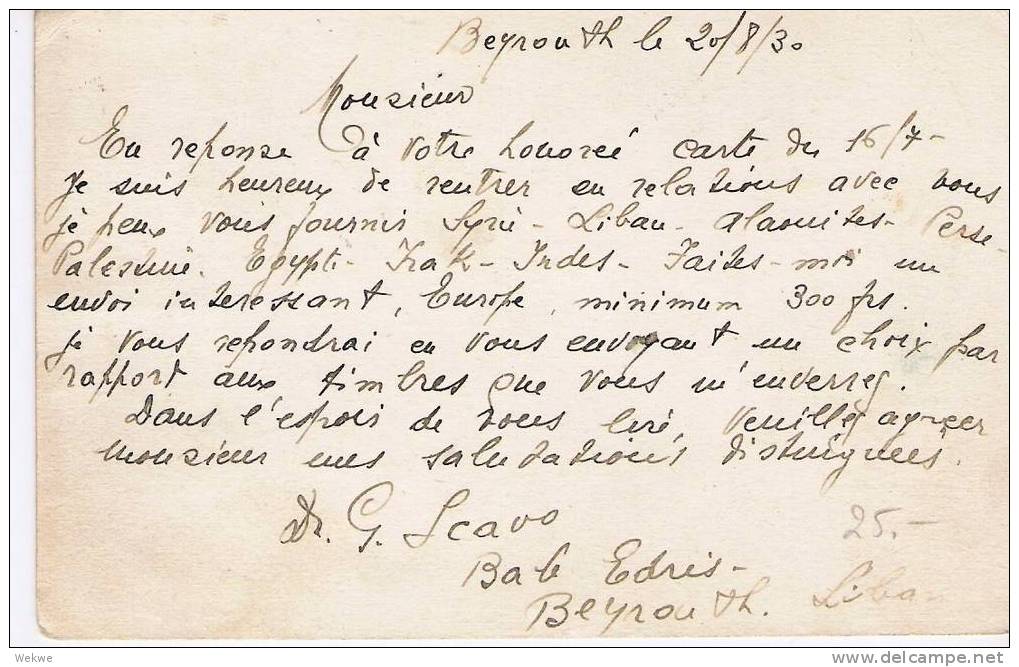 Beyrouth le 20/8/30
Monsieur
En reponse à votre honorée carte du 16/7-
je suis heureux de rentrer en relations avec vous
je peux vous fournir Syrie - Liban - Alaouites - Perse -
Palestine. Egypte - Irak - Indes - Faites-moi un
envoi interessant, Europe, minimum 300 frs.
je vous repondrai en vous envoyant un choix par
rapport aux timbres que vous m'enverrez.
Dans l'espoir de vous lire, veuillez agréer
monsieur mes salutations distinguées.
Dr. G. Scavo
25.-
Bab Edris -
Beyrouth.
Liban
Wekwe
www.delcampe.net